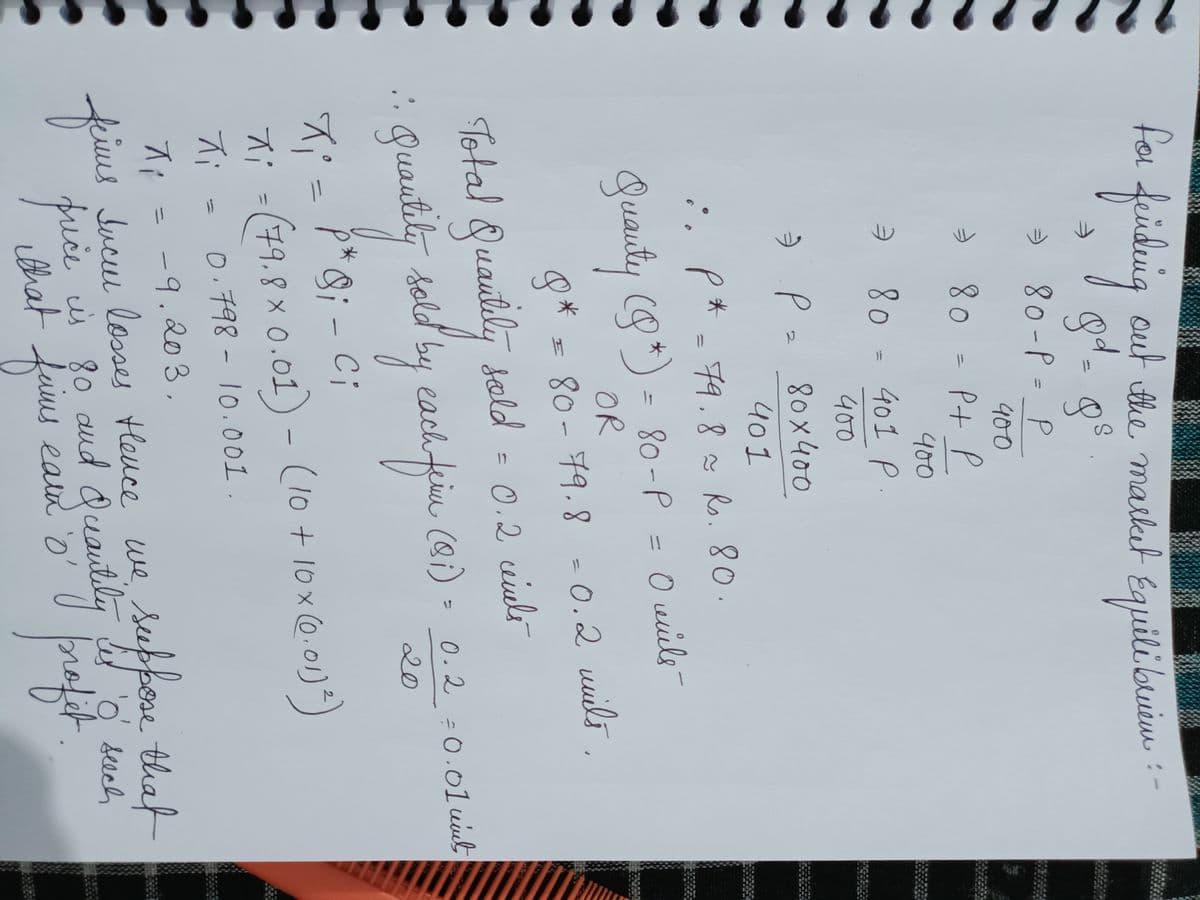 For finding out the market Equilibrium :-
⇒ Qd = Qs.
⇒ 80 - P = P/400
⇒ 80 = P + P/400
⇒ 80 = 401/400 P.
⇒ P = 80×400/401
∴ P* = 79.8 ≈ Rs. 80.
Quanty (Q*) = 80 - P = 0 units
OR
Q* = 80 - 79.8 = 0.2 units.
Total Quantity sold = 0.2 units
∴ Quantity sold by each firm (Qi) = 0.2/20 = 0.01 unit
πi = P* Qi - Ci
πi = (79.8 × 0.01) - (10 + 10 × (0.01)²)
πi = 0.798 - 10.001.
πi = -9.203.
firms Incur losses Hence we, suppose that
price is 80 and Quantity is '0' such
that firms earn '0' profit.